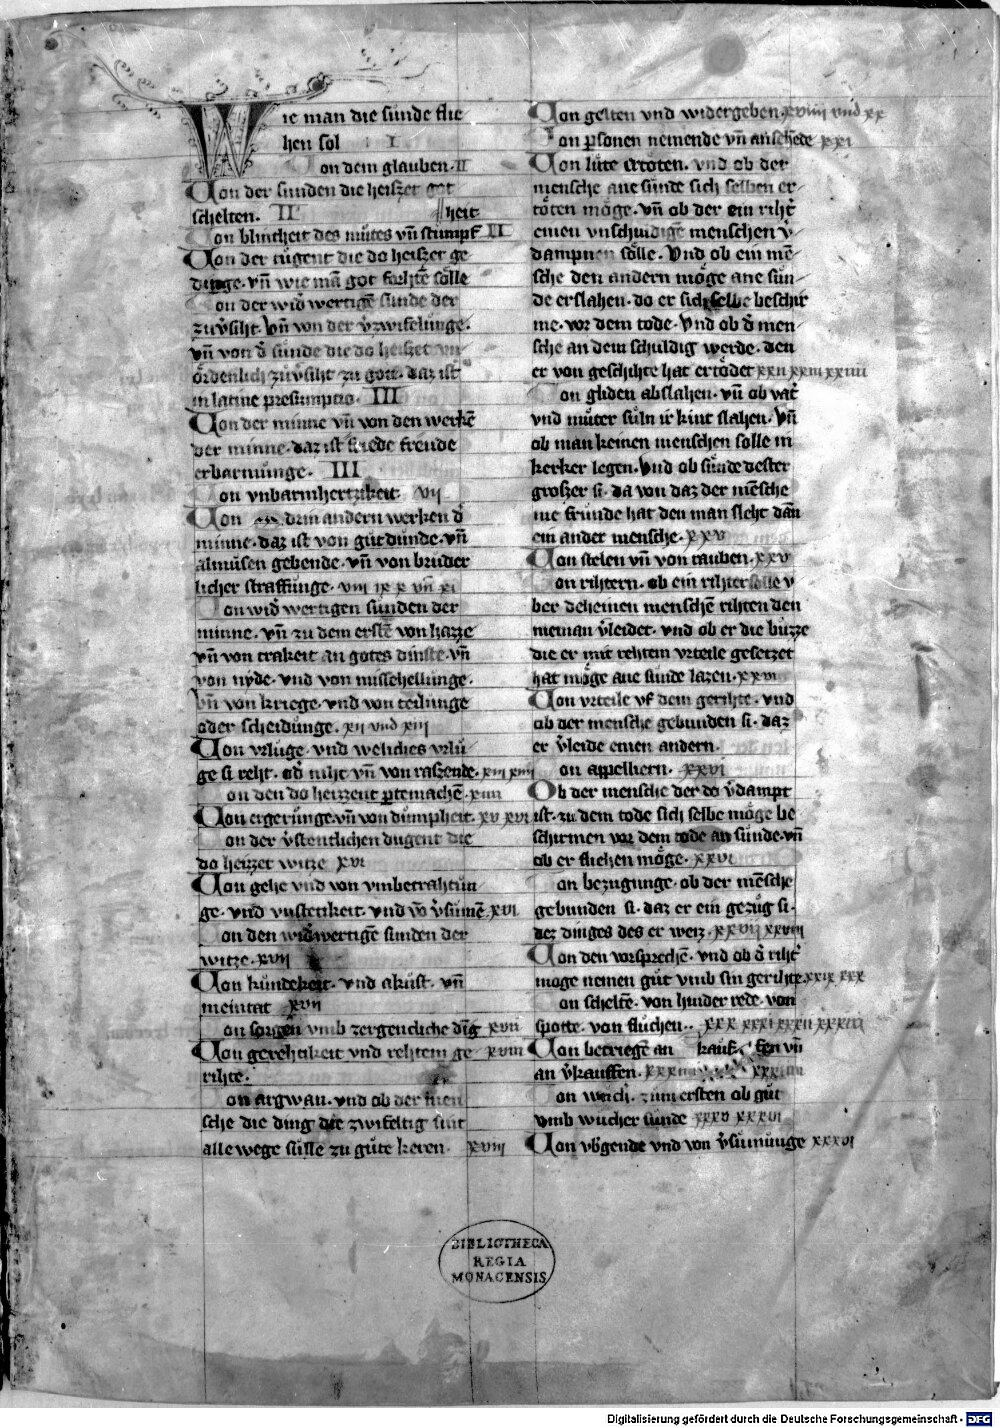 Wie man die sünde flie
hen sol I
Von dem glauben. II
Von der sunden die heiszet got
schelten. II
heit
Von blintheit des mütes vn̄ stumpf II
Von der tugent die do heiszet ge
dinge. vn̄ wie mā got forhtē sölle
Von der wid̓ wertigē sunde der
zuv̓siht. vn̄ von der v̓zwifelünge.
vn̄ von d̓ sünde die do heiszet vn
ördenlich züv̓siht zu gott. daz ist
in latine presumptio. III
Von der minne vn̄ von den werkē
der minne. daz ist friede freüde
erbarmünge. III
Von vnbarmhertzikeit. VII
Von den andern werken d̓
minne. daz ist von güt dünde. vn̄
almüsen gebende. vn̄ von brüder
licher straffunge. viii ix x vn̄ xi
Von wid̓ wertigen sunden der
minne. vn̄ zu dem erstē von hazze
vn̄ von trakeit an gotes dinste. vn̄
von nyde. vnd von misschellunge.
vn̄ von kriege. vnd von teilunge
oder scheidünge. xii vnd xiii
Von vrlüge. vnd weliches vrlü
ge si reht. od̓ niht vn̄ von raszende. xiii xiiii
Von den do heizzent ptemachē. xiiii
Von ergerünge. vn̄ von dümpheit. xv xvi
Von der v̓stentlichen dugent die
do heizzet witze xvi
Von gehe vnd von vnbetrahtün
ge. vnd vnstetikeit. vnd vō v̓sümē. xvi
Von den wid̓wertigē sunden der
witze. xvii
Von kündekeit. vnd akust. vn̄
meintat xvii
Von sorgen vmb zergencliche dīg xvii
Von gerehtikeit vnd rehtem ge xviii
rihte.
Von argwan. vnd ob der men
sche die ding die zwifeltig sint
alle wege sülle zu güte keren. xviii
Von gelten vnd widergeben. xviiii vnd xx
Von psonen nemende vn̄ anschēde xxi
Von lüte ertöten. vnd ob der
mensche ane sünde sich selben er
töten möge. vn̄ ob der ein riht̓
einen vnschuldigē menschen v̓
dampnen sölle. Vnd ob ein mē
sche den andern möge ane sün
de erslahen. do er sich selbe beschir
me. vor dem tode. Vnd ob d̓ men
sche an dem schuldig werde. den
er von geschihte hat ertödet xxii xxiii xxiiii
Von gliden abslahen. vn̄ ob vat̓
vnd müter süln ir kint slahen. Vn̄
ob man keinen menschen solle in
kerker legen. Vnd ob sünde dester
groszer si. da von daz der mēsche
me fründe hat den man sleht dān
ein ander mensche. xxv
Von stelen vn̄ von rauben. xxv
Von rihtern. ob ein rihter solle v
ber deheinen menschē rihten den
nieman v̓leidet. vnd ob er die büzze
die er mit rehtem vrteile gesetzet
hat möge ane sünde lazen. xxvi
Von vrteile vf dem gerihte. vnd
ob der mensche gebunden si. daz
er v̓leide einen andern.
Von appellieren. xxvi
Ob der mensche der do v̓dampt
ist. zu dem tode sich selbe möge be
schirmen vor dem tode an sünde. vn̄
ob er fliehen möge. xxvi
Von bezugunge. ob der mēsche
gebunden si. daz er ein gezüg si.
dez dinges des er weiz. xxvii xxviii
Von den vorsprechē. vnd ob d̓ riht̓
moge nemen güt vmb sin gerihte. xxix xxx
Von scheltē. von hinder rede. von
spotte. von flüchen.. xxx xxxi xxxii xxxiii
Von betriegē an kauffen vn̄
an v̓kauffen.
Von wüch̓. zům ersten ob güt
vmb wücher sünde xxxv xxxvi
Von vb̓gende vnd von v̓sumunge xxxvi
BIBLIOTHECA
REGIA
MONACENSIS
Digitalisierung gefördert durch die Deutsche Forschungsgemeinschaft - DFG